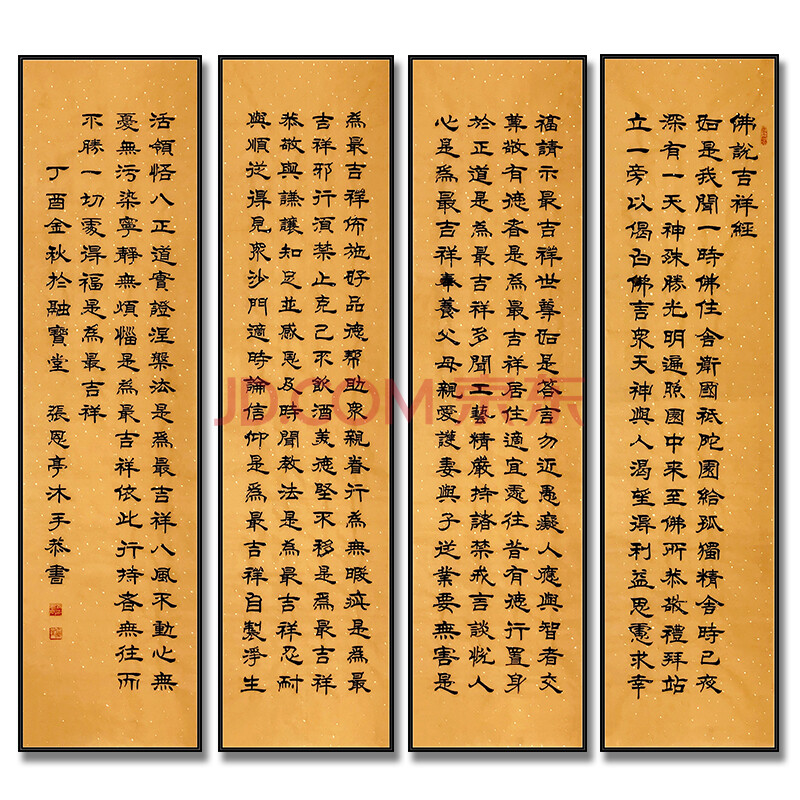 佛說吉祥經
如是我聞一時佛住舍衛國祗陀園給孤獨精舍時已夜
深有一天神殊勝光明遍照園中来至佛所恭敬禮拜站
立一旁以偈白佛言眾天神與人渴望得利益思慮求幸
福請示最吉祥世尊如是答言勿近愚癡人應與智者交
尊敬有德者是為最吉祥居住適宜處往昔有德行置身
於正道是為最吉祥多聞工藝精嚴持諸禁戒言談悅人
心是為最吉祥奉養父母親愛護妻與子從業要無害是
為最吉祥佈施好品德幫助眾親眷行為無瑕疵是為最
吉祥邪行須禁止克己不飲酒美德堅不移是為最吉祥
恭敬與謙讓知足並感恩及時聞教法是為最吉祥忍耐
與順從得見眾沙門適時論信仰是為最吉祥自製淨生
活領悟八正道實證涅槃法是為最吉祥八風不動心無
憂無污染寧靜無煩惱是為最吉祥依此行持者無往而
不勝一切處得福是為最吉祥
丁酉金秋於融寶堂 張恩亭沐手恭書
JD.COM 京东